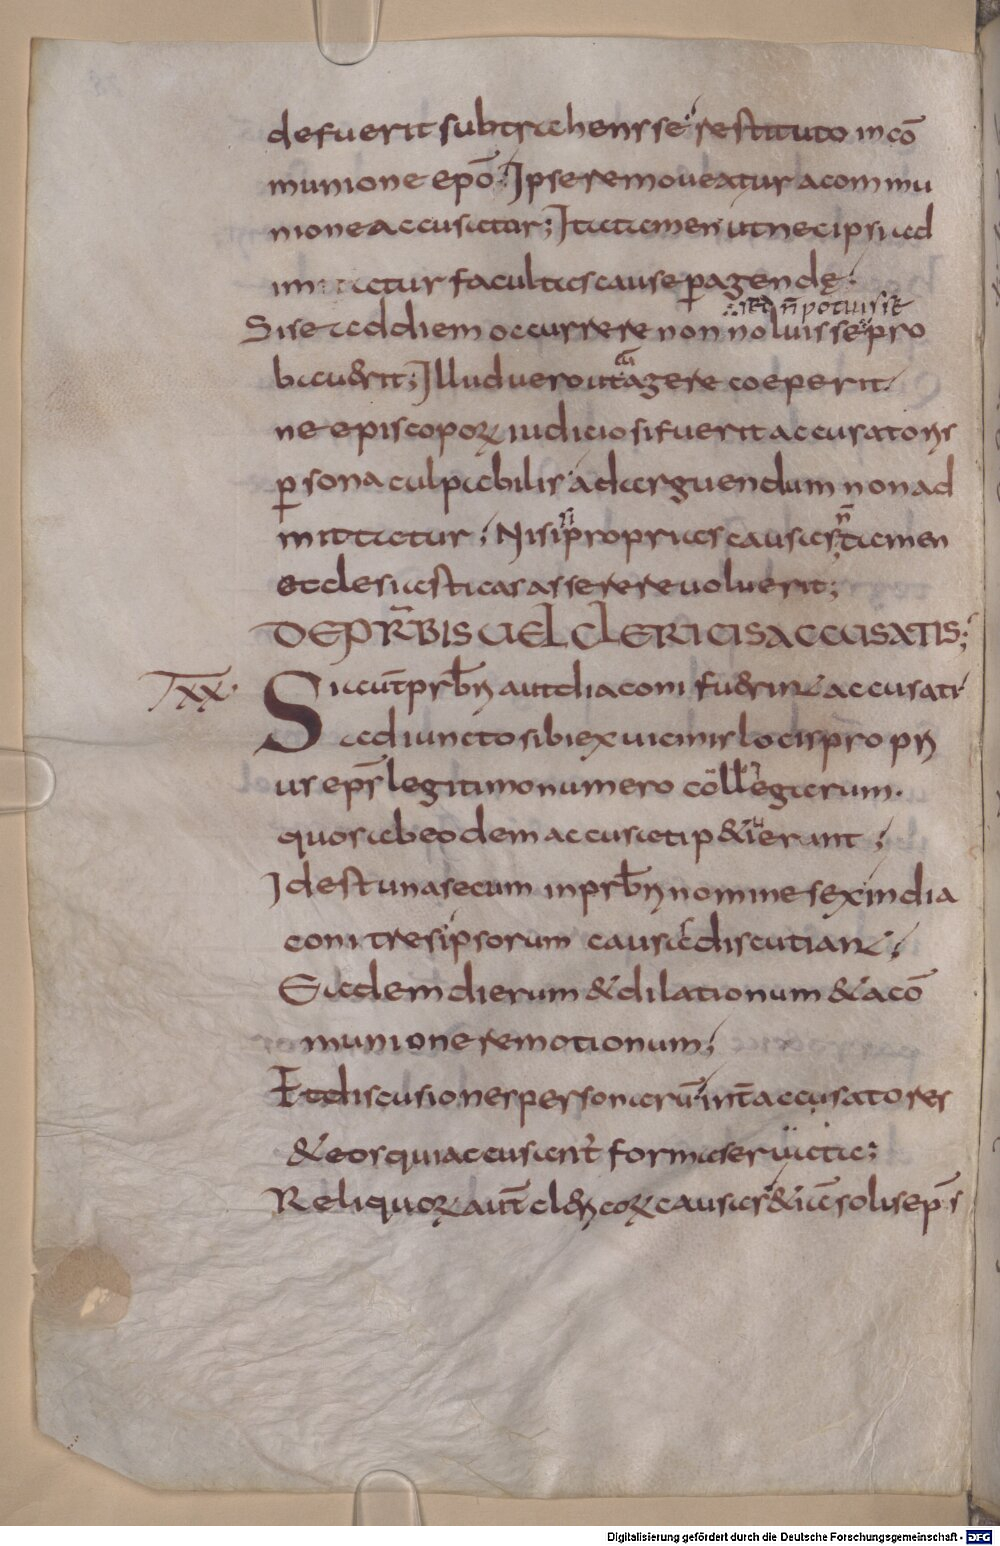 defuerit subtrahens se restituto in cō
munione epō; Ipse remoueatur a commu
nione accusator; Ita tamen ut nec ipsi ad
imatur facultas cause ꝑagendę;
sed n̄ potuisse
Si se ad diem occurrere non noluisse pro
bauerit; Illud uero ut cū agere coeperit
ne episcoporꝝ iudicio si fuerit accusatoris
ꝑsona culpabilis ad arguendum non ad
mittatur; Nisi proprias causas n̄ tamen
ecclesiasticas asserere uoluerit;
DE PRB̄IS UEL CLERICIS ACCUSATIS;
XX. Si autē prb̄i aut diaconi fuerint accusati
adiuncto sibi ex uicinis locis propri
us ep̄s legitimo numero collegarum.
quos ab eodem accusati petierant;
Id est una secum in prb̄i nomine sex in dia
coni tres ipsorum causā discutiant;
Eadem dierum & dilationum & a cō
munione remotionum;
Et discusiones personarū int̄ accusatores
& eos qui accusant̄ forma seruata;
Reliquorꝝ aut̄ clericorꝝ causas &iā solis ep̄s
Digitalisierung gefördert durch die Deutsche Forschungsgemeinschaft - DFG